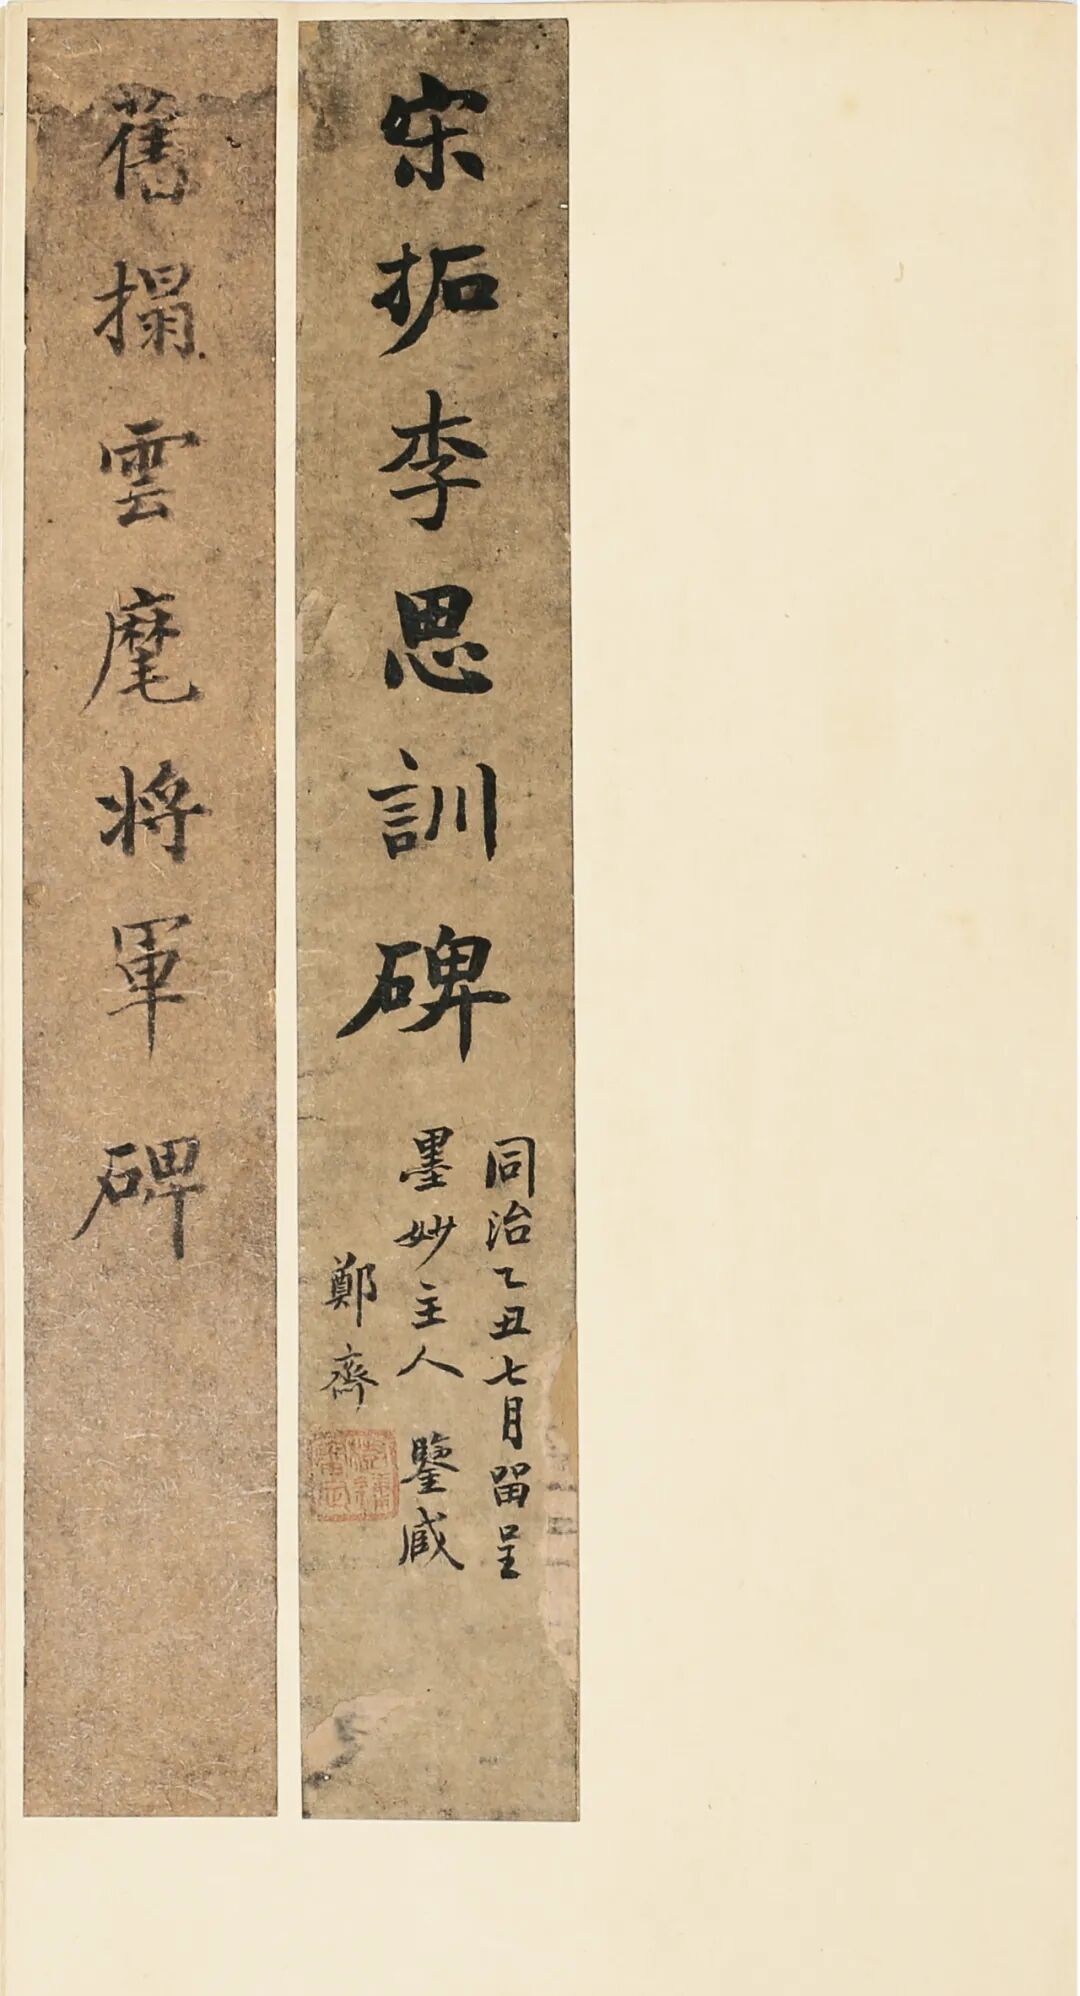 宋拓李思訓碑
同治乙丑七月留呈
墨妙主人鑒藏
鄭齋
舊搨雲麾將軍碑